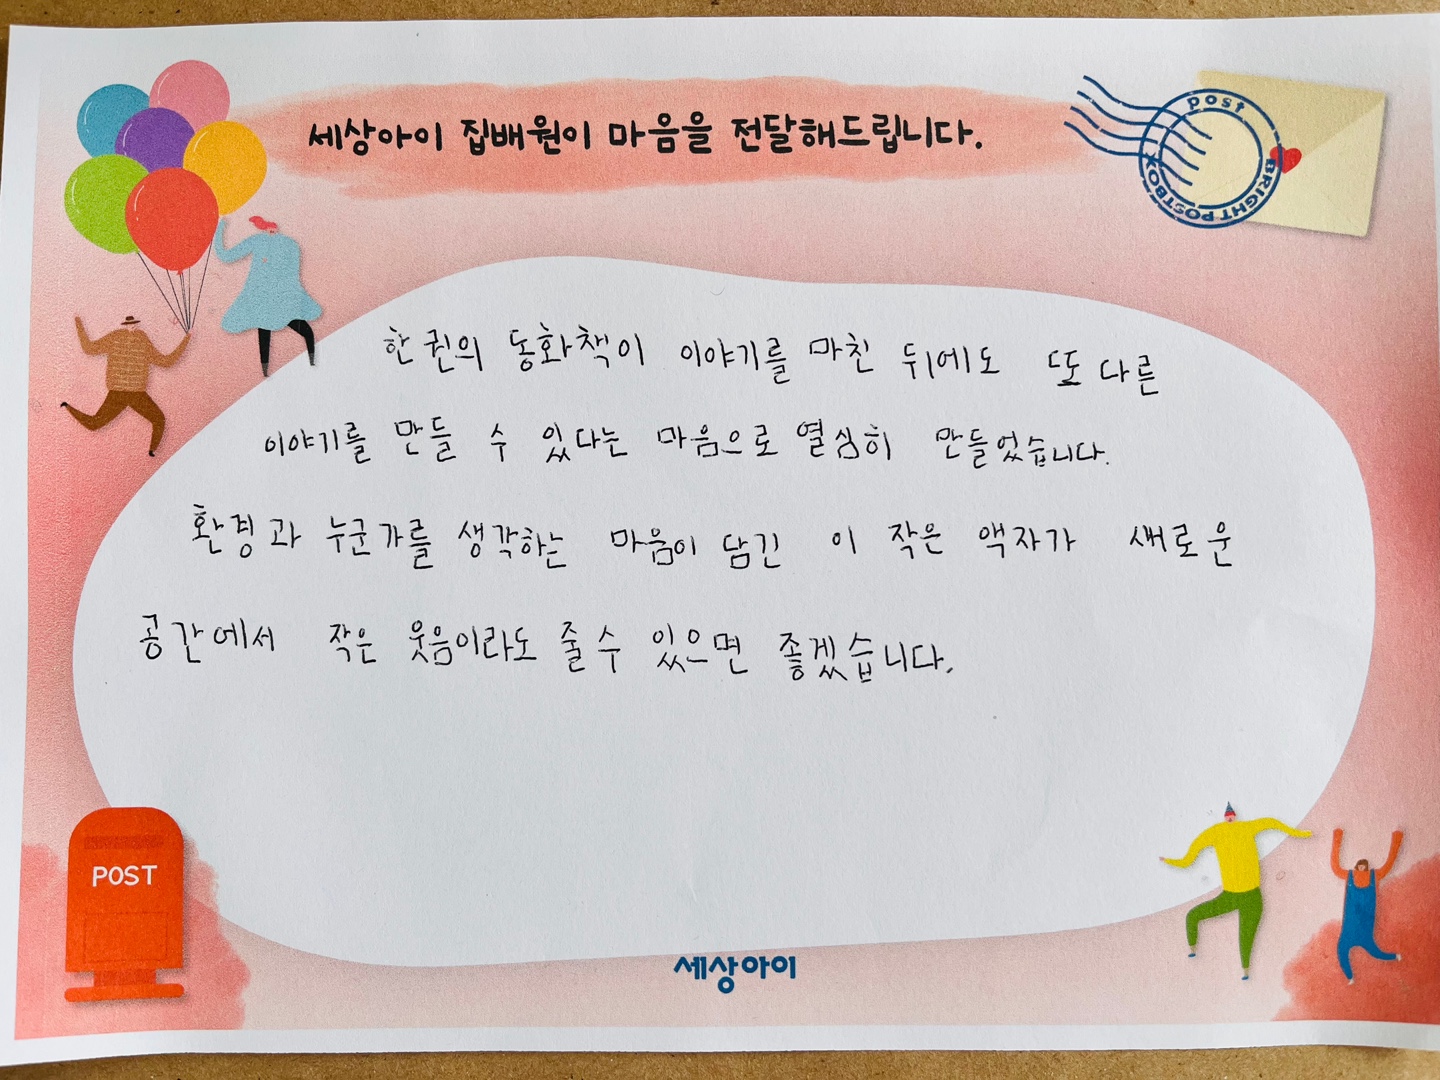 세상아이 집배원이 마음을 전달해드립니다.
post
BRIGHT POSTBOX
한 권의 동화책이 이야기를 마친 뒤에도 또 다른
이야기를 만들 수 있다는 마음으로 열심히 만들었습니다.
환경과 누군가를 생각하는 마음이 담긴 이 작은 액자가 새로운
공간에서 작은 웃음이라도 줄 수 있으면 좋겠습니다.
POST
세상아이